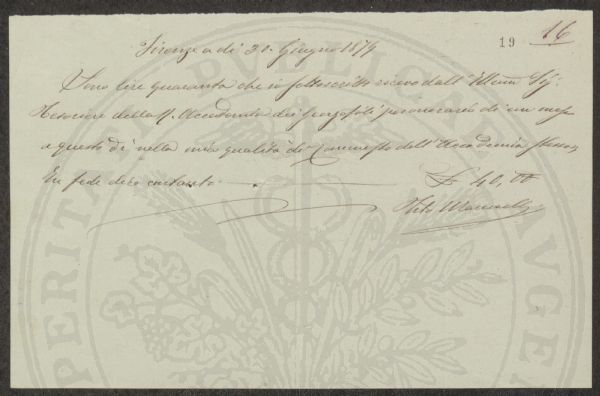 19 16
Firenze a dì 30. Giugno 1879
Sono lire quaranta che io sottoscritto ricevo dall' Illmo Sig:
Tesoriere della R. Accademia dei Georgofili per onorario di un mese
a questo dì nella mia qualità di Commesso dell' Accademia stessa,
In fede dico contanto £ 40,00
Tito
PROSPERITATI PVBLICAE AVGENDAE